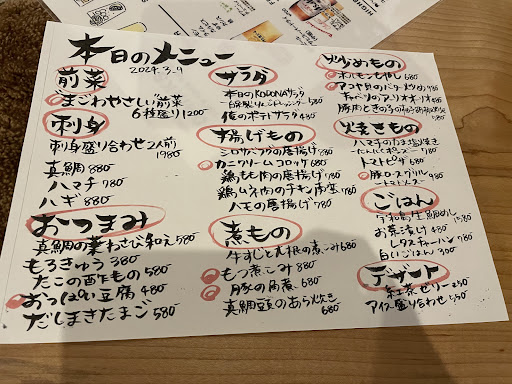 本日のメニュー
2024.3.9
前菜
まごわやさしい前菜
6種盛り1200
刺身
刺身盛り合わせ2人前
1980
真鯛 880
ハマチ 780
ハギ 880
おつまみ
真鯛の葉わさび和え 580
もろきゅう 380
たこの酢もの 580
おっぱい豆腐 480
だしまきたまご 580
サラダ
本日のKODONAサラダ
自家製りんごドレッシング 580
俺のポテトサラダ 480
揚げもの
カニクリームコロッケ 680
鶏もも肉の唐揚げ 780
鶏ムネ肉のチキン南蛮 780
ハモの唐揚げ 780
煮もの
牛すじと大根の煮こみ 680
もつ煮こみ 880
豚の角煮 680
真鯛頭のあら炊き
680
炒めもの
ホルモンもやし 880
アコヤ貝のバター炒め 780
キャベツのアーリオオーリオ 680
焼きもの
ハマチのカマ塩焼き
トマトピザ 680
豚ロースグリル
ごはん
宇和島生鯛めし
お茶漬け 480
レタスチャーハン 780
白いごはん 300
デザート
紅茶ゼリー 350
アイス盛り合わせ 550